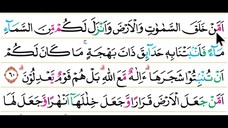 اَمَّنْ خَلَقَ السَّمٰوٰتِ وَالْاَرْضَ وَاَنْزَلَ لَكُمْ مِّنَ السَّمَآءِ
مَآءً ۚ فَاَنْۢبَتْنَا بِهٖ حَدَآئِقَ ذَاتَ بَهْجَةٍ ۚ مَا كَانَ لَكُمْ
اَنْ تُنْۢبِتُوْا شَجَرَهَا ؕ ءَاِلٰهٌ مَّعَ اللّٰهِ ؕ بَلْ هُمْ قَوْمٌ يَّعْدِلُوْنَ ۶۰
اَمَّنْ جَعَلَ الْاَرْضَ قَرَارًا وَّجَعَلَ خِلٰلَهَاۤ اَنْهٰرًا وَّجَعَلَ لَهَا